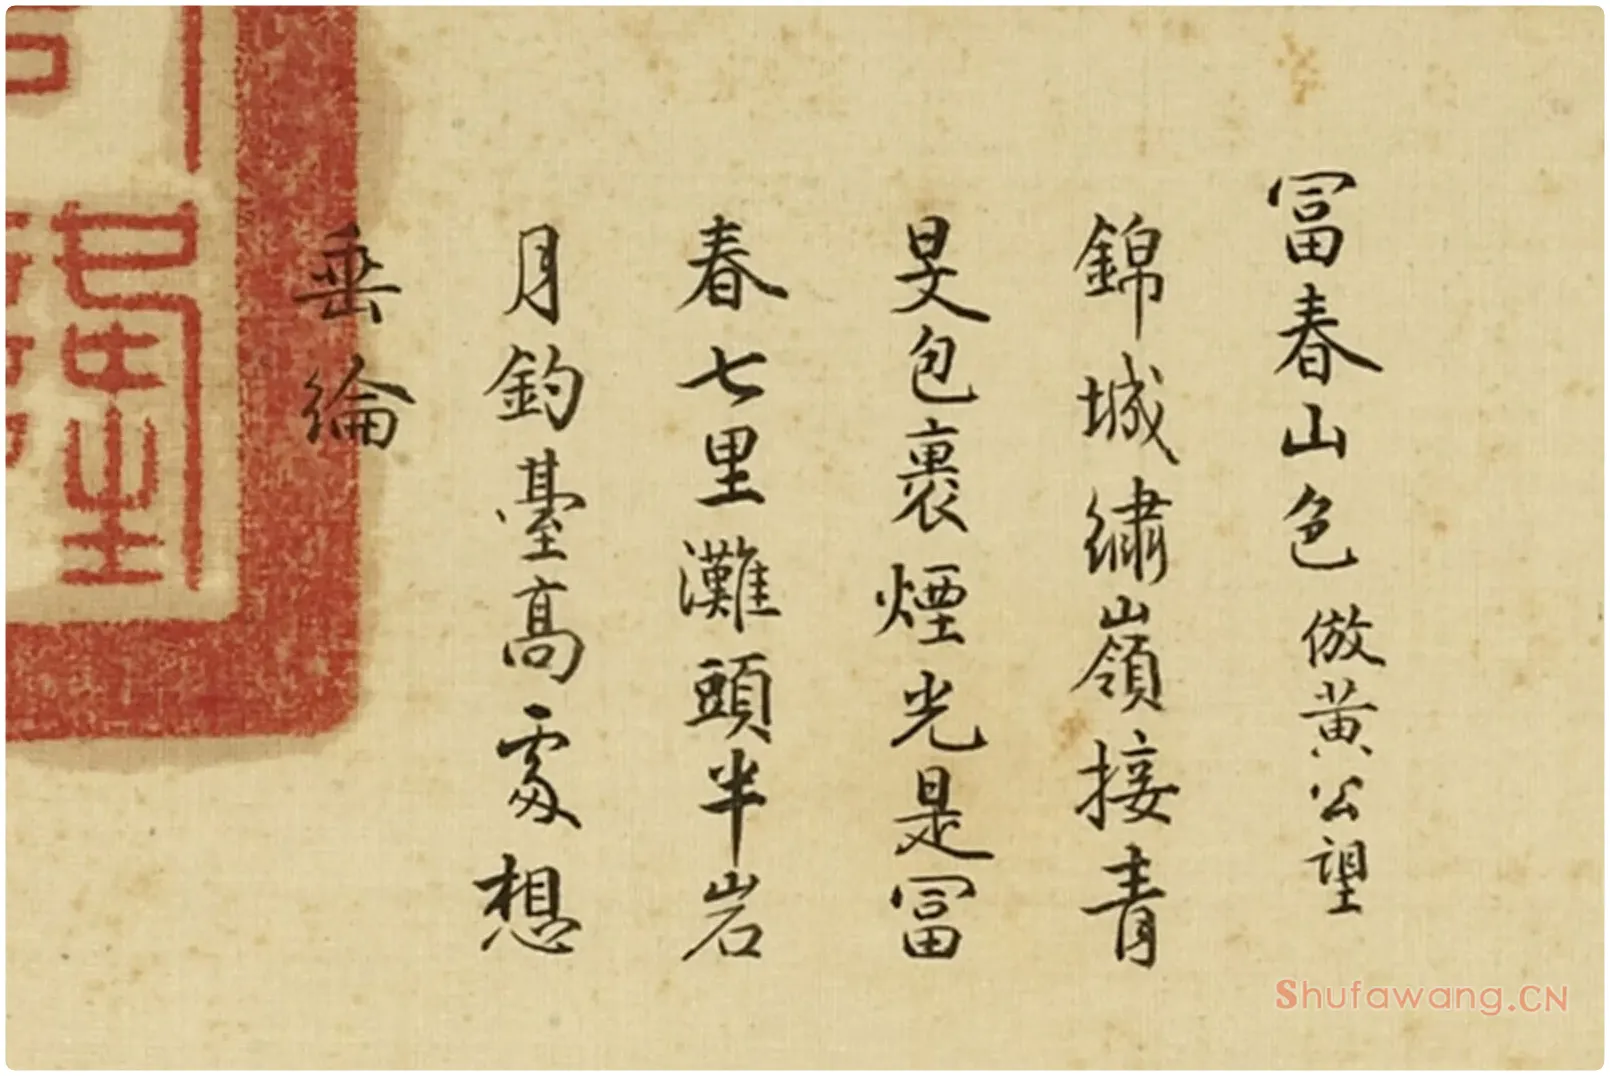 冨春山色 倣黄公望
錦城繡嶺接青
旻包裹煙光是冨
春七里灘頭半岩
月釣臺高處想
垂綸
Shufawang.CN